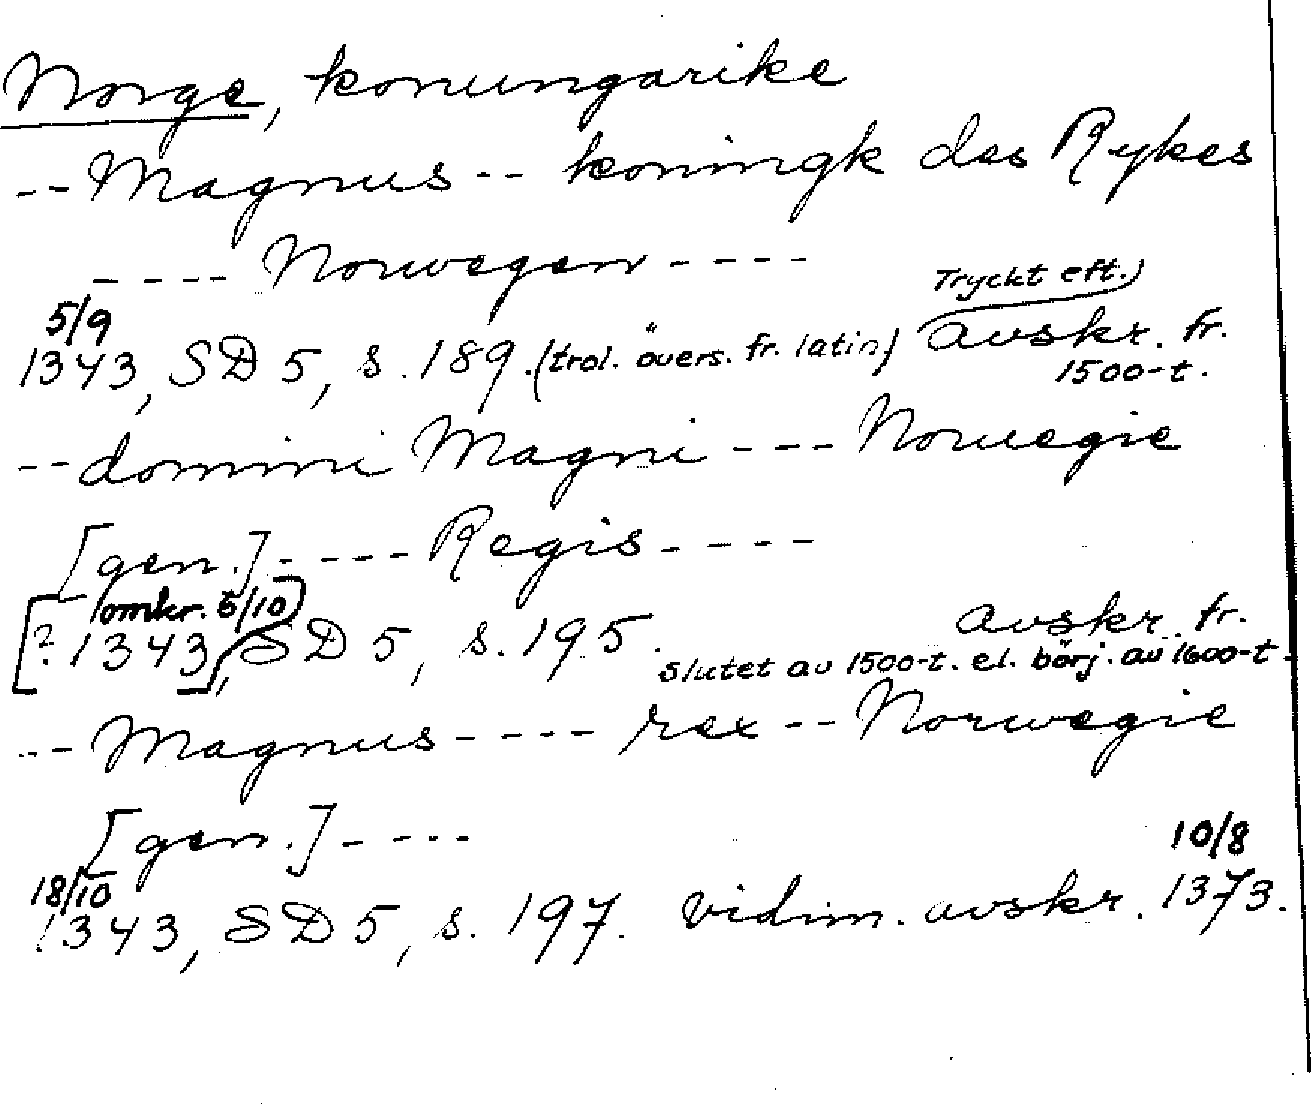 Norge, konungarike
--Magnus-- koningk des Rykes
---- Norwegen ----
5/9 Tryckt eft.)
1343, SD 5, s. 189. (trol. övers. fr. latin) avskr. fr.
1500-t.
--domini Magni --- Noruegie
[gen.] ---- Regis ----
(omkr. 5/10)
[?1343], SD 5, s. 195. avskr. fr.
slutet av 1500-t. el. börj. av 1600-t.
-- Magnus ---- rex -- Norwegie
[gen.] ----
18/10 10/8
1343, SD 5, s. 197. vidim. avskr. 1373.